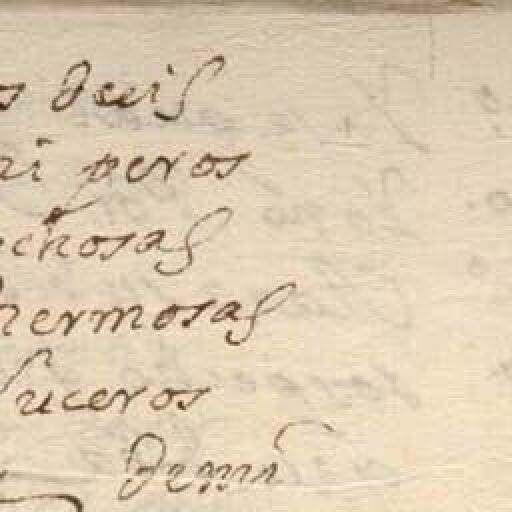 s deeis
ri peros
echosas
hermosas
luceros
de mi